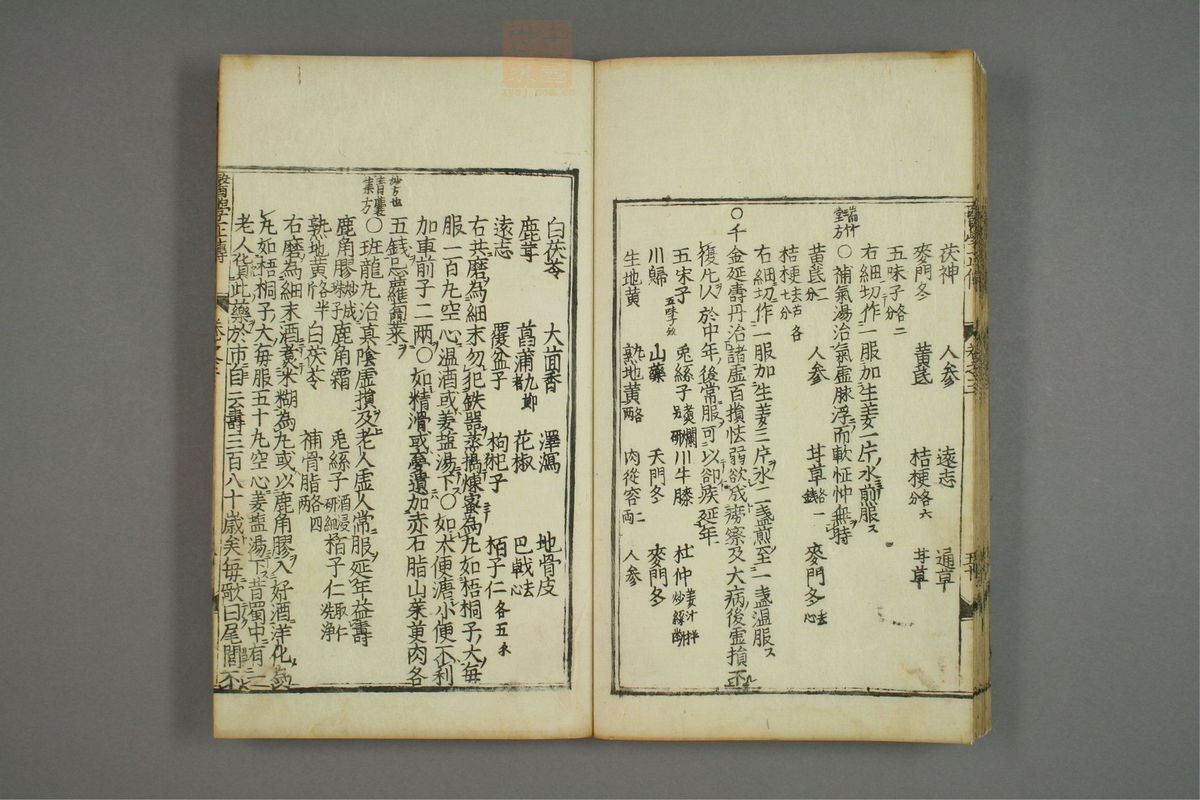 茯神　人参　遠志　通草
麥門冬　黄芪　桔梗各六分　甘草
五味子各二分
右細切作一服加生姜一片水煎服ス
○補氣湯治氣虚脉浮而軟怔忡無時
黄芪二分　人参　甘草各一錢　麥門冬去心
桔梗去芦各七分
右細切作一服加生姜三片水二盞煎至一盞温服ス
○千金延壽丹治諸虚百損怯弱欲成癆瘵及大病後虚損不
復凢人於中年後常服可以卻疾延年
五味子　兎絲子　川牛膝　杜仲姜汁拌炒絲断
川歸　山藥　天門冬　麥門冬
生地黄　熟地黄各二两　肉從容二両　人参
白茯苓　大茴香　澤瀉　地骨皮
鹿茸　菖蒲九節者　花椒　巴戟去心
遠志　覆盆子　枸杞子　栢子仁各五
右共磨為細末勿犯鉄噐蒸搗煉蜜為丸如梧桐子大毎
服一百九空心温酒或姜塩湯下○如大便溏小便不利
加車前子二兩○如精滑或夢遺加赤石脂山茱萸肉各
五錢忌蘿蔔菜
○班龍九治真陰虚損及老人虚人常服延年益壽
鹿角膠炒成珠子　鹿角霜　兎絲子酒浸研細　栢子仁取仁洗浄
熟地黄各半斤　白茯苓　補骨脂各四两
右磨為細末酒煮米糊為丸或以鹿角膠入好酒洋化
丸如梧桐子大毎服五十九空心姜塩湯下昔蜀中有一
老人貨此藥於市自云壽三百八十歳矣毎歌曰尾閭不